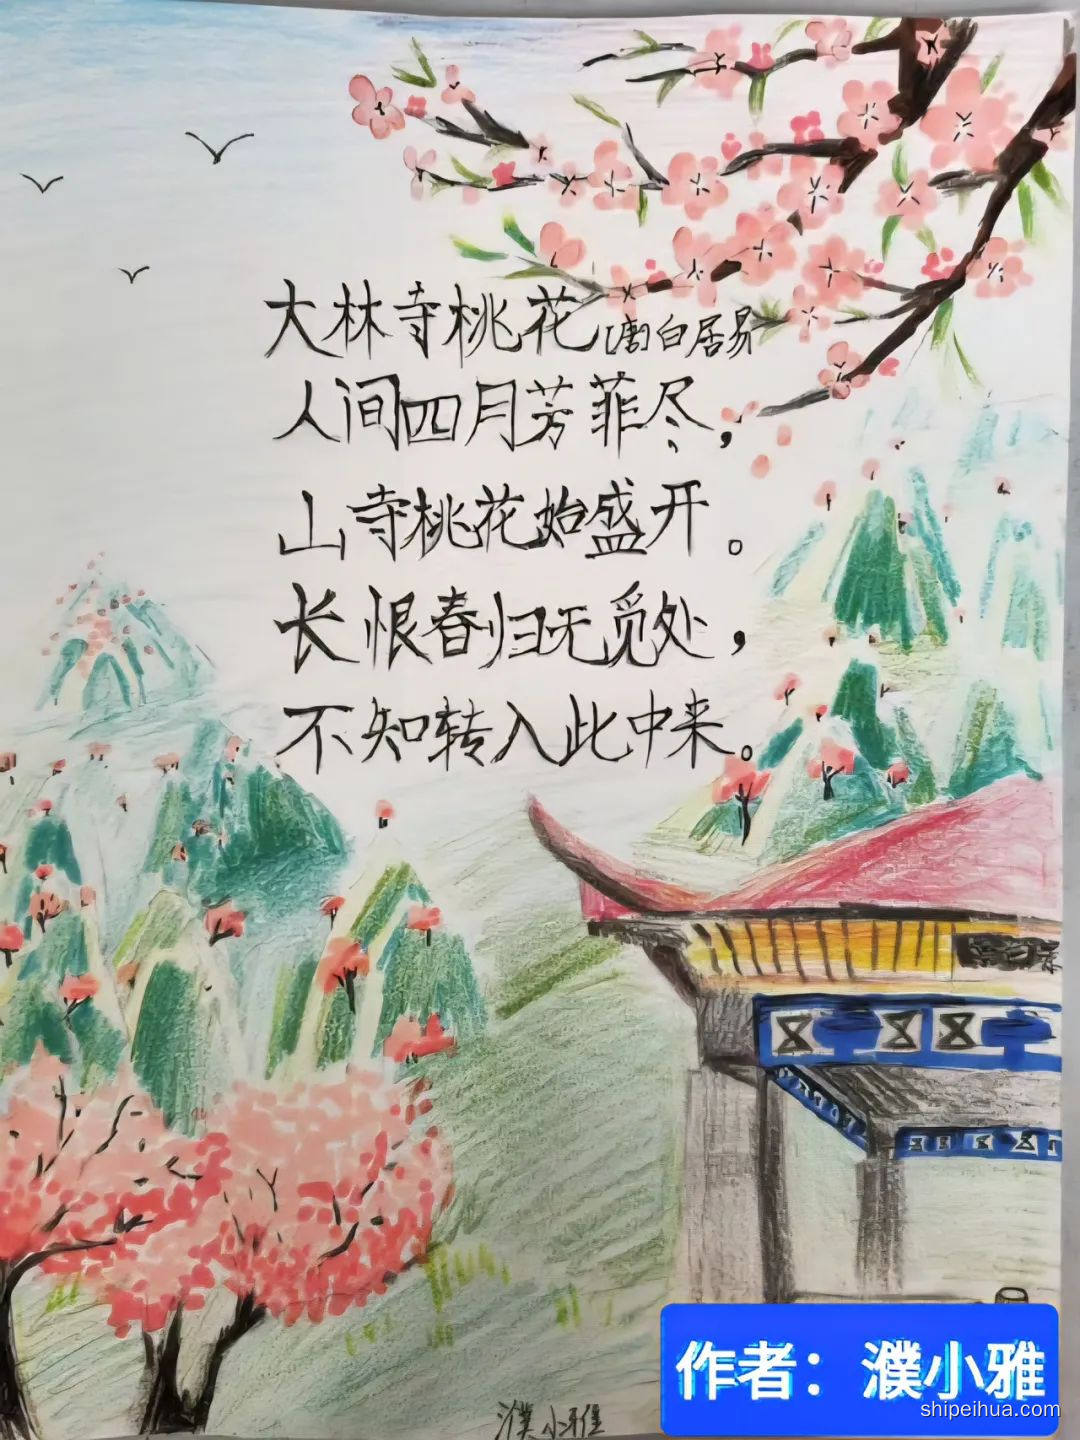 大林寺桃花[唐]白居易
人间四月芳菲尽，
山寺桃花始盛开。
长恨春归无觅处，
不知转入此中来。
濮小雅
作者：濮小雅
shipeihua.com